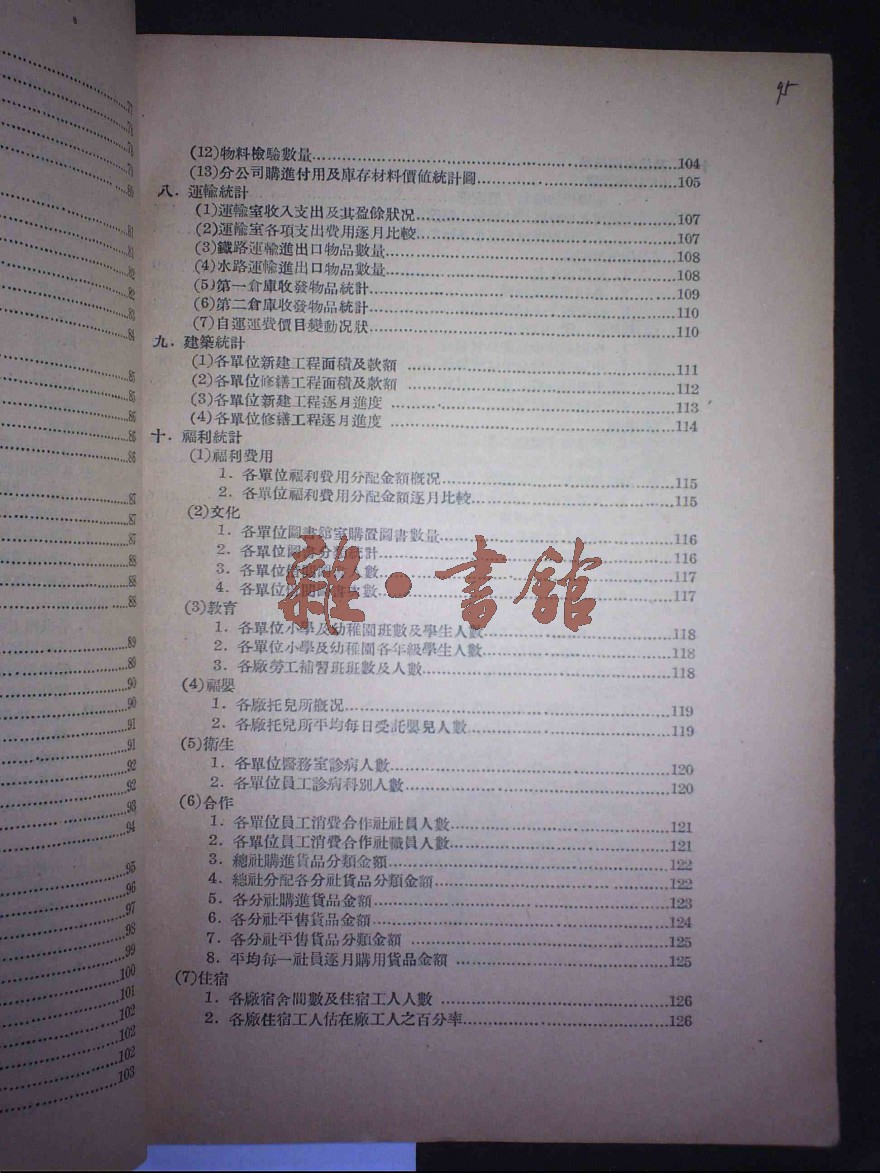 8
77
78
79
80
81
81
82
82
83
84
85
85
86
86
86
87
87
87
88
88
88
89
89
90
90
91
91
92
92
93
94
95
96
97
98
99
100
101
102
102
102
103
95
(12)物料檢驗數量 104
(13)分公司購進付用及庫存材料價值統計圖 105
八．運輸統計
(1)運輸室收入支出及其盈餘狀况 107
(2)運輸室各項支出費用逐月比較 107
(3)鐵路運輸進出口物品數量 108
(4)水路運輸進出口物品數量 108
(5)第一倉庫收發物品統計 109
(6)第二倉庫收發物品統計 110
(7)自運運費價目變動况狀 110
九．建築統計
(1)各單位新建工程面積及款額 111
(2)各單位修繕工程面積及款額 112
(3)各單位新建工程逐月進度 113
(4)各單位修繕工程逐月進度 114
十．福利統計
(1)福利費用
1．各單位福利費用分配金額概况 115
2．各單位福利費用分配金額逐月比較 115
(2)文化
1．各單位圖書館室購置圖書數量 116
2．各單位圖書分類統計 116
3．各單位借閱 人數 117
4．各單位借閱圖書 數 117
(3)教育
1．各單位小學及幼稚園班數及學生人數 118
2．各單位小學及幼稚園各年級學生人數 118
3．各廠勞工補習班班數及人數 118
(4)福嬰
1．各廠托兒所概况 119
2．各廠托兒所平均每日受託嬰兒人數 119
(5)衛生
1．各單位醫務室診病人數 120
2．各單位員工診病科別人數 120
(6)合作
1．各單位員工消費合作社社員人數 121
2．各單位員工消費合作社職員人數 121
3．總社購進貨品分類金額 122
4．總社分配各分社貨品分類金額 122
5．各分社購進貨品金額 123
6．各分社平售貨品金額 124
7．各分社平售貨品分類金額 125
8．平均每一社員逐月購用貨品金額 125
(7)住宿
1．各廠宿舍間數及住宿工人人數 126
2．各廠住宿工人佔在廠工人之百分率 126
雜·書館